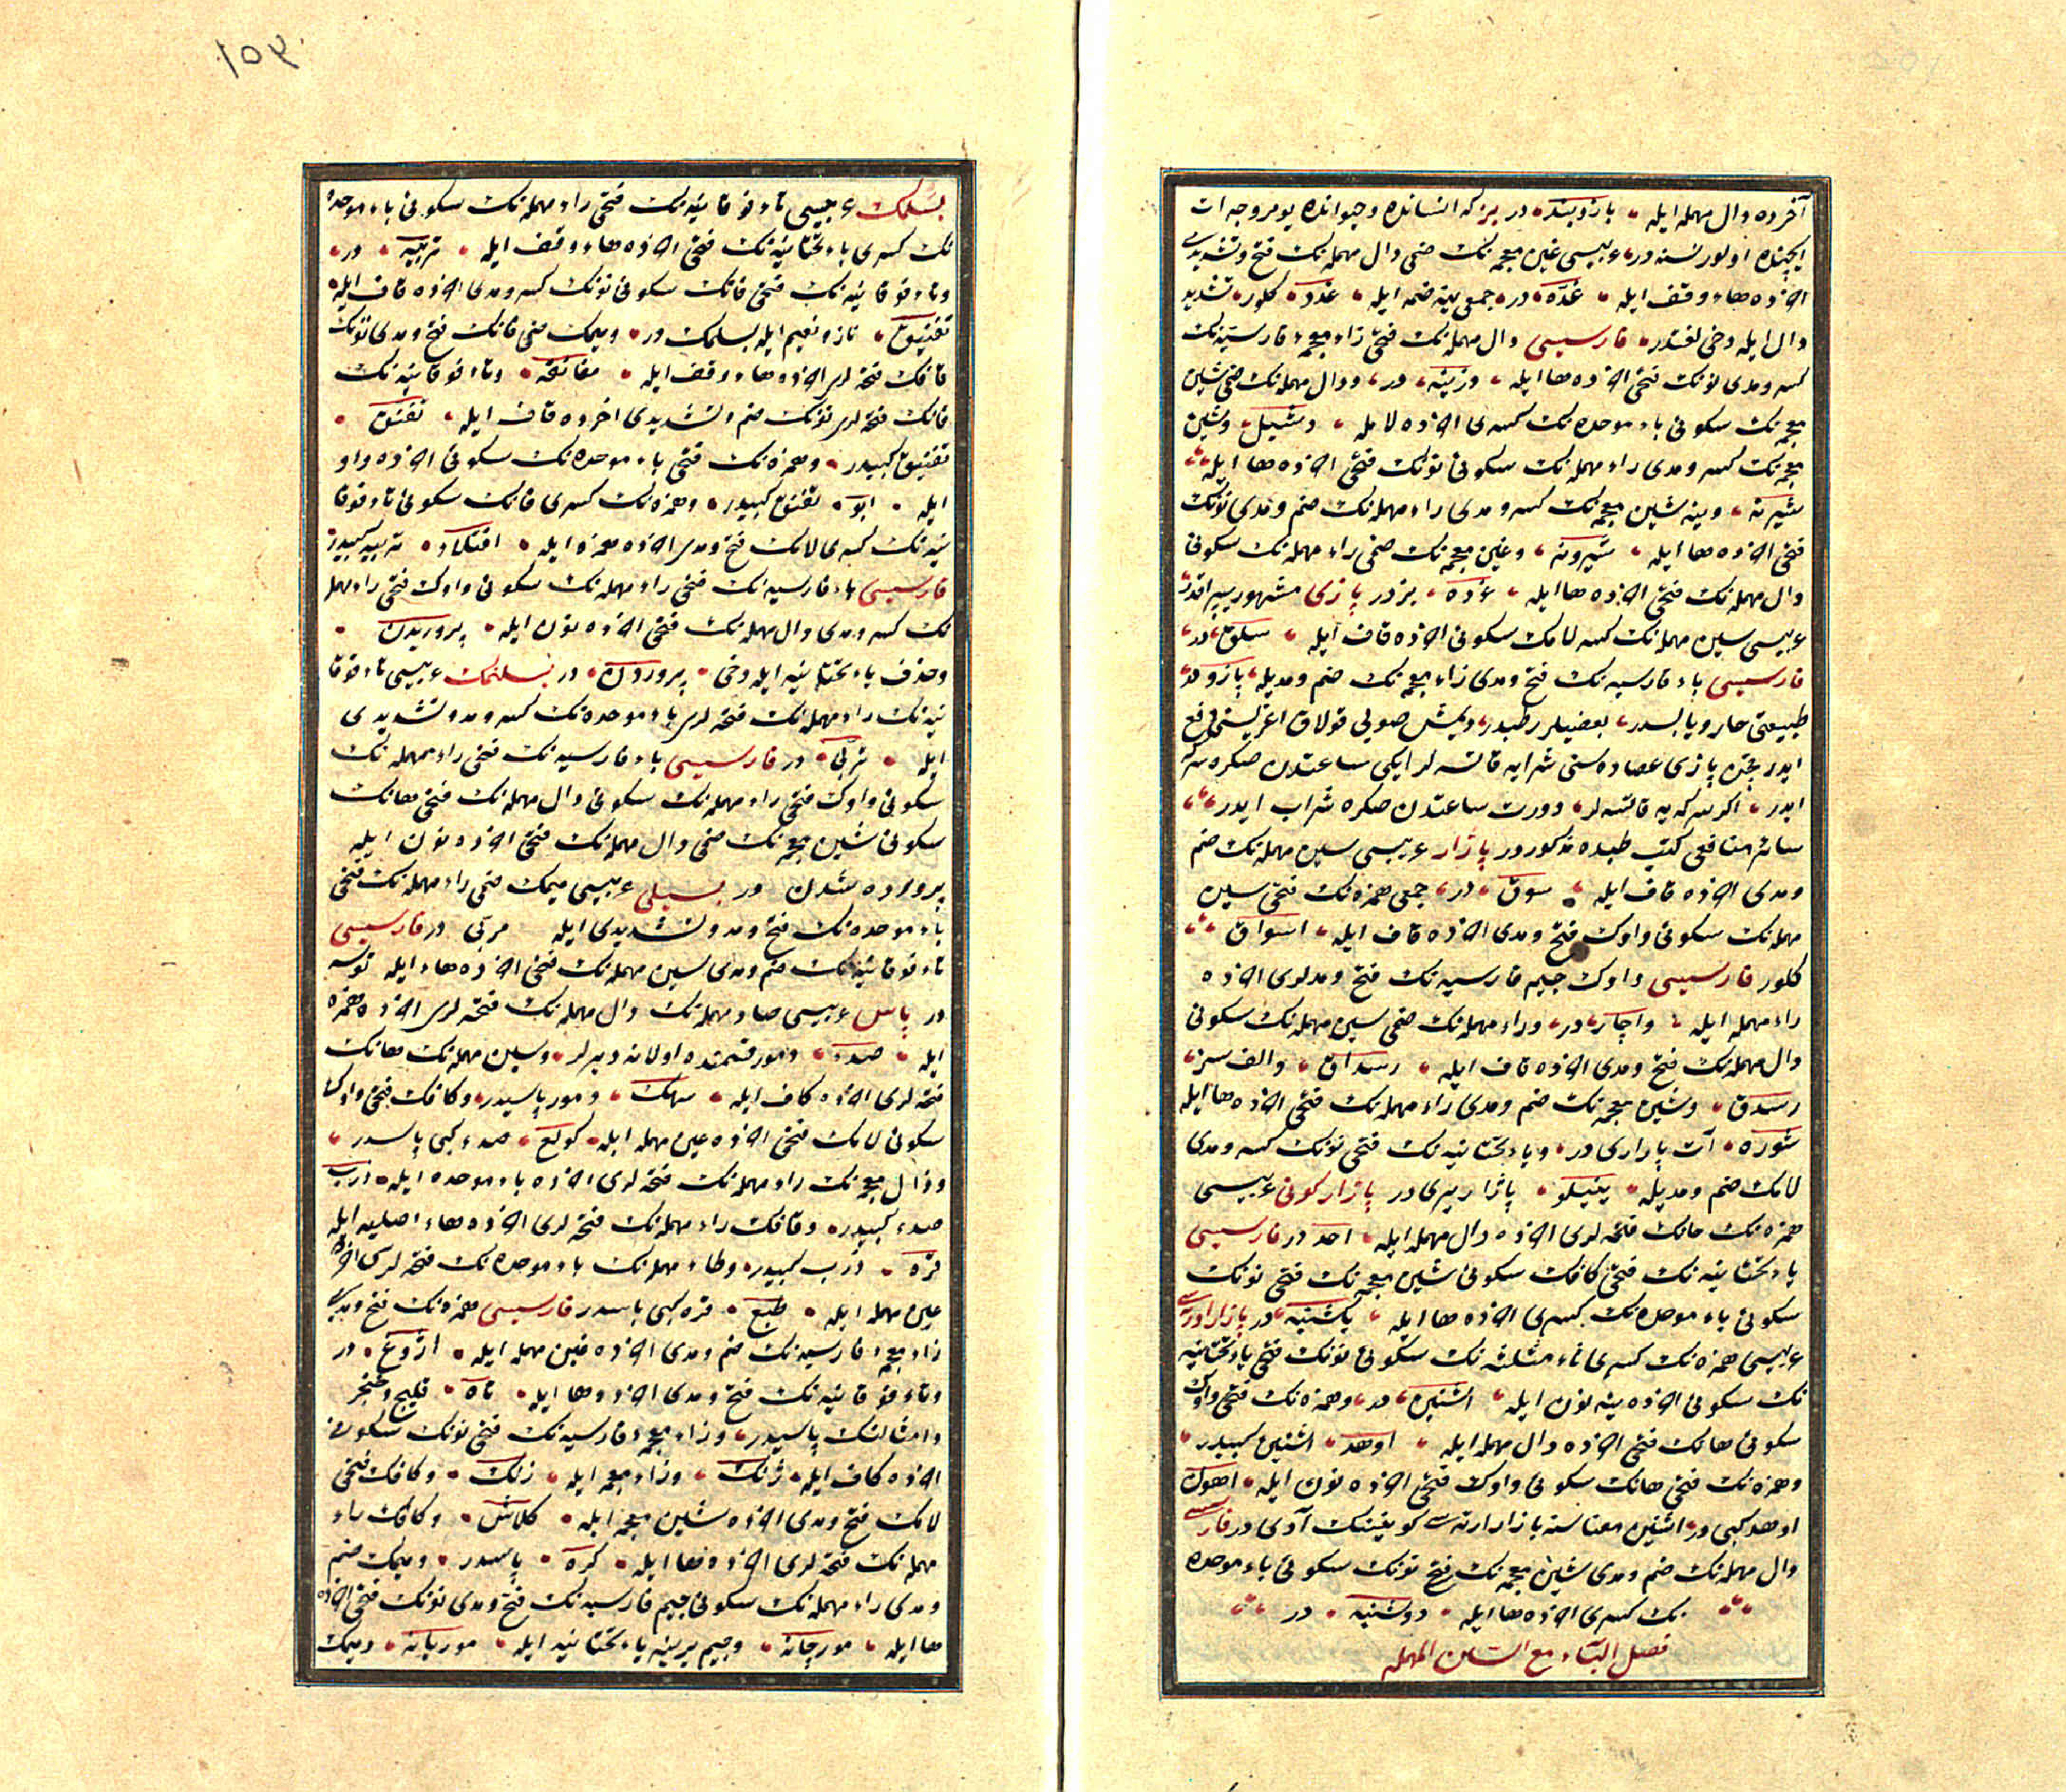 آخرده دال مهمله ايله ، بازوبند ، در بز كه انسانده وحيوانده يومروجه ات
ايچنده اولور نسنه در ، عربيسى غين معجمه نك ضمى دال مهمله نك فتح وتشديدى
اخرده هاء وقف ايله ، غدّه ، در ، جمعى ينه ضمه ايله ، غدد ، كلور ، تشديد
دال ايله دخى لغتدر ، فارسيسى دال مهمله نك فتحى زاء معجمهء فارسيّه نك
كسر ومدى نونك فتحى اخرده ها ايله ، دژينه ، در ، ودال مهمله نك ضمى شين
معجمه نك سكونى باء موحده نك كسرى اخرده لامله ، دشبل ، وشين
معجمه نك كسر ومدى راء مهمله نك سكونى نونك فتحى اخرده ها ايله ،
شيرنه ، وينه شين معجمه نك كسر ومدى راء مهمله نك ضم ومدى نونك
فتحى اخرده ها ايله ، شيرونه ، وغين معجمه نك ضمى راء مهمله نك سكونى
دال مهمله نك فتحى اخرده ها ايله ، غرده ، بزدر پازى مشهور يپراقدر
عربيسى سين مهمله نك كسر لامك سكونى اخرده قاف ايله ، سلق ، در ،
فارسيسى باء فارسيه نك فتح ومدى زاء معجمه نك ضم ومديله ، پازو ، در ،
طبيعتى حار ويابسدر ، بعضيلر رطبدر ، ديمش صويى قولاق اغريسنى دفع
ايدر پازى عصاره سنى شرابه قاتسه لر ايكى ساعتدن صكره سركه
ايدر ، اكر سركه يه قاتسه لر ، دورت ساعتدن صكره شراب ايدر ،
سائر منافعى كتب طبده مذكوردر پازار عربيسى سين مهمله نك ضم
ومدى اخرده قاف ايله ، سوق ، در ، جمعى همزه نك فتحى سين
مهمله نك سكونى واوك فتح ومدى اخرده قاف ايله ، اسواق ،
كلور فارسيسى واوك جيم فارسيه نك فتح ومدلرى اخرده
راء مهمله ايله ، واچار ، در ، وراء مهمله نك ضمى سين مهمله نك سكونى
دال مهمله نك فتح ومدى اخرده قاف ايله ، رسداق ، والف سز ،
رسدق ، وشين معجمه نك ضم ومدى راء مهمله نك فتحى اخرده ها ايله
شوره ، آت پازارى در ، وياء تحتانيه نك فتحى نونك كسر ومدى
لامك ضم ومديله ، ينيلو ، پازار يرى در پازار كونى عربيسى
همزه نك حانك فتحه لرى اخرده دال مهمله ايله ، احد در فارسيسى
ياء تحتانيه نك فتحى كافك سكونى شين معجمه نك فتحى نونك
سكونى باء موحده نك كسرى اخرده ها ايله ، يكشنبه ، در پازار ارته سى
عربيسى همزه نك كسرى ثاء مثلثه نك سكونى نونك فتحى ياء تحتانيه
نك سكونى اخرده ينه نون ايله ، اثنين ، در ، وهمزه نك فتحى واوك
سكونى هانك فتحى اخرده دال مهمله ايله ، اوهد ، اثنين كبيدر ،
وهمزه نك فتحى هانك سكونى واوك فتحى اخرده نون ايله ، اهون
اوهد كبى در ، اثنين معناسنه بازار ارته سى كونينك آدى در فارسيسى
دال مهمله نك ضم ومدى شين معجمه نك فتح نونك سكونى باء موحده
نك كسرى اخرده ها ايله ، دوشنبه ، در
فصل الباء مع السين المهمله
١٥٣
بسلمك عربيسى تاء فوقانيه نك فتحى راء مهمله نك سكونى باء موحده
نك كسرى ياء تحتانيه نك فتحى اخرده هاء وقف ايله ، تربيه ، در ،
وتاء فوقانيه نك فتحى فانك سكونى نونك كسر ومدى اخرده قاف ايله
تفنيق ، ناز ونعيم ايله بسلمك در ، وميمك ضمى فانك فتح ومدى نونك
قافك فتحه لرى اخرده هاء وقف ايله ، مفانقه ، وتاء فوقانيه نك
فانك فتحه لرى نونك ضم وتشديدى اخرده قاف ايله ، تفنق ،
تفنيق كبيدر ، وهمزه نك فتحى باء موحده نك سكونى اخرده واو
ايله ، ابو ، تفنق كبيدر ، وهمزه نك كسرى فانك سكونى تاء فوقا
نيه نك كسرى لامك فتح ومدى اخرده همزه ايله ، افتلاء ، تربيه كبيدر
فارسيسى باء فارسيه نك فتحى راء مهمله نك سكونى واوك فتحى راء مهمله
نك كسر ومدى دال مهمله نك فتحى اخرده نون ايله ، پروريدن ،
وحذف ياء تحتانيه ايله دخى ، پروردن ، در بسلنمك عربيسى تاء فوقا
نيه نك راء مهمله نك فتحه لرى باء موحده نك كسر ومد وتشديدى
ايله ، تربّى ، در فارسيسى باء فارسيه نك فتحى راء مهمله نك
سكونى واوك فتحى راء مهمله نك سكونى دال مهمله نك فتحى هانك
سكونى شين معجمه نك ضمى دال مهمله نك فتحى اخرده نون ايله
پرورده شدن در بسيلى عربيسى ميمك ضمى راء مهمله نك فتحى
باء موحده نك فتح ومد وتشديدى ايله مربّى در فارسيسى
تاء فوقانيه نك ضم ومدى سين مهمله نك فتحى اخرده هاء ايله توسه
در پاس عربيسى صاد مهمله نك دال مهمله نك فتحه لرى اخرده همزه
ايله ، صدء ، دمور قسمنده اولانه ديرلر ، وسين مهمله نك هانك
فتحه لرى اخرده كاف ايله ، سهك ، دمور پاسيدر ، وكافك فتحى واوك
سكونى لامك فتحى اخرده عين مهمله ايله ، كولع ، صدء كبى پاسدر ،
وذال معجمه نك راء مهمله نك فتحه لرى اخرده باء موحده ايله ، ذرب
صدء كبيدر ، وقافك راء مهمله نك فتحه لرى اخرده هاء اصليه ايله
قره ، ذرب كبيدر ، وطاء مهمله نك باء موحده نك فتحه لرى اخرده
عين مهمله ايله ، طبع ، قره كبى پاسدر فارسيسى همزه نك فتح ومدى
زاء معجمهء فارسيه نك ضم ومدى اخرده غين معجمه ايله ، آژوغ ، در
وتاء فوقانيه نك فتح ومدى اخرده ها ايله ، تاه ، قليج وخنجر
وامثالنك پاسيدر ، وزاء معجمهء فارسيه نك فتحى نونك سكونى
اخرده كاف ايله ، ژنك ، وزاء معجمه ايله ، زنك ، وكافك فتحى
لامك فتح ومدى اخرده شين معجمه ايله ، كلاش ، وكافك راء
مهمله نك فتحه لرى اخرده ها ايله ، كره ، پاسدر ، وميمك ضم
ومدى راء مهمله نك سكونى جيم فارسيه نك فتح ومدى نونك فتحى اخرده
ها ايله ، مورچانه ، وجيم يرينه ياء تحتانيه ايله ، موريانه ، وميمك